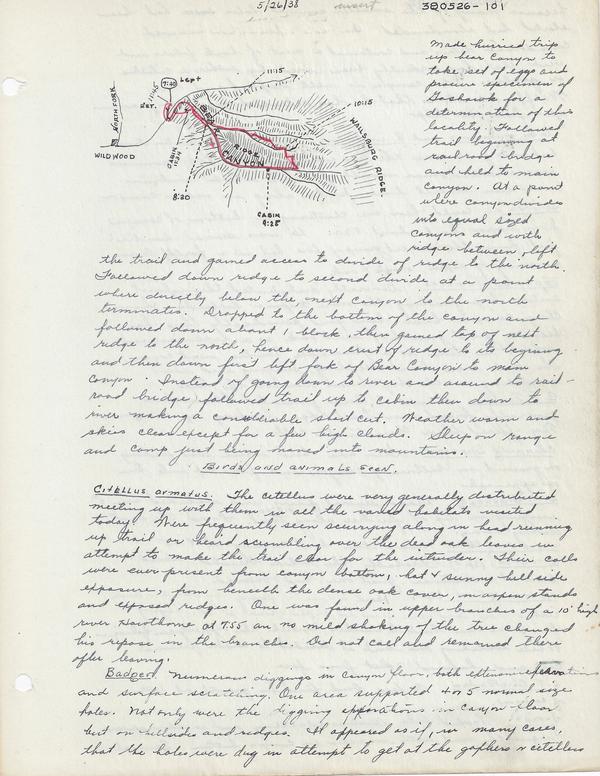 5/26/38 insert 380526-101
Made hurried trip
up bear Canyon to
take set of eggs and
procure specimen of
Goshawk for a
determination of this
locality. Followed
trail beginning at
railroad bridge
and held to main
canyon. At a point
where canyon divides
into equal sized
canyons and with
ridge between, left
NORTH FORK
WILDWOOD
RET.
11:45
7:40
Left
11:15
10:15
WALLSBURG RIDGE.
BEAR
RIDGE
CANYON
CABIN
8:20
CABIN
9:25
the trail and gained access to divide of ridge to the north.
Followed down ridge to second divide at a point
where directly below the next canyon to the north
terminates. Dropped to the bottom of the canyon and
followed down about 1 block, then gained top of next
ridge to the north, hence down crest of ridge to its begining
and then down first left fork of Bear Canyon to main
Canyon. Instead of going down to river and around to rail-
road bridge, followed trail up to cabin then down to
river making a considerable short cut. Weather warm and
skies clear except for a few high clouds. Sheep on range
and camp just being moved into mountains.
Birds and animals seen.
Citellus armatus. The citellus were very generally distributed
meeting up with them in all the varied habitats visited
today. Were frequently seen scurrying along in head running
up trail or heard scrambling over the dead oak leaves in
attempt to make the trail clear for the intruder. Their calls
were ever present from canyon bottom, hot & sunny hill side
exposure, from beneath the dense oak cover, in aspen stands
and exposed ridges. One was found in upper branches of a 10' high
river Hawthorne at 7:55 an no mild shaking of the tree changed
his repose in the branches. Did not call and remained there
after leaving.
Badger. Numerous diggings in canyon floor, both extensive excavations
and surface scratching. One area supported 4 or 5 normal size
holes. Not only were the digging operations in canyon floor
but on hillsides and ridges. It appeared as if, in many cases,
that the holes were dug in attempt to get at the gophers or citellus